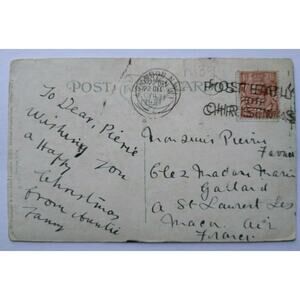 POST CARD
LONDON
POST EARLY
FOR
CHRISTMAS
To Dear, Pierre
Wishing you
a Happy
Christmas
from Auntie
Fanny
Monsieur Pierre
Chez Madam Marie
Gallard
a St Laurent Les
Macon Ain
France